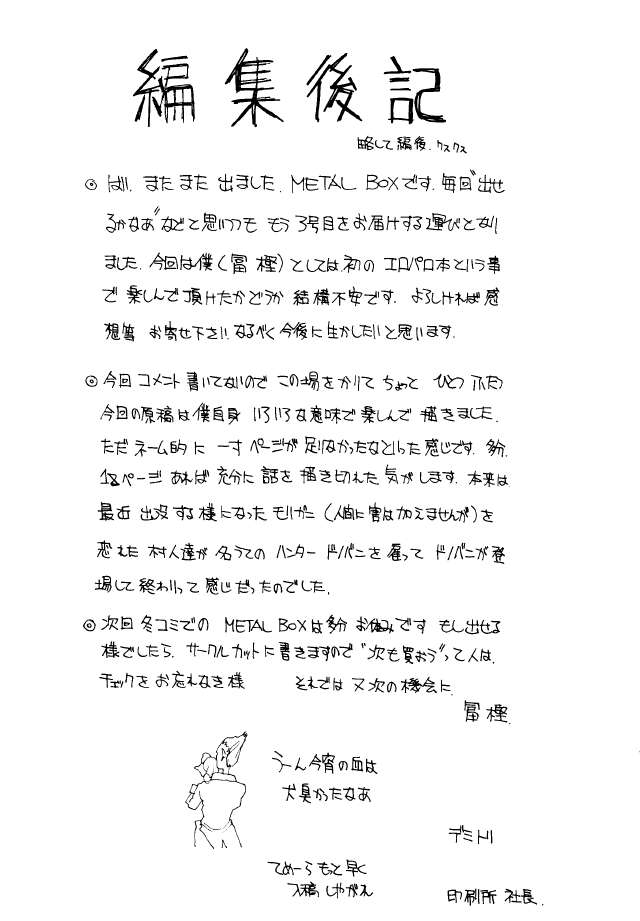 編集後記
略して編後.クスクス
◎ はい. またまた 出ました. METAL BOXです. 毎回"出せ
るかなあ"などと思いつつも もう3号目をお届けする運びとなり
ました. 今回は僕(冨樫)としては.初の エロパロ本という事
で 楽しんで頂けたかどうか 結構不安です. よろしければ感
想等 お寄せ下さい. なるべく今後に生かしたいと思います.
◎ 今回 コメント書いてないので この場をかりて ちょっと ひとつ ふたつ
今回の原稿は僕自身 いろいろな意味で楽しんで 描きました.
ただネーム的に 一寸 ページが足りなかったなといった感じです. 多分.
12ページ あれば 充分に 話を 描き切れた 気がします. 本来は
最近 出没する様になった モリガン(人間に害は加えませんが)を
恋れた 村人達が 名うての ハンター ドノバンを 雇って ドノバンが登
場して終わりって感じだったのでした.
◎ 次回 冬コミでの METAL BOXは多分 お休みです もし出せる
様でしたら. サークルカットに書きますので"次も買おう"って人は.
チェックをお忘れなき様 それでは 又次の機会に.
冨樫.
うーん今宵の血は
犬臭かったなあ
デミトリ
てめーら もっと早く
入稿しやがれ
印刷所 社長.